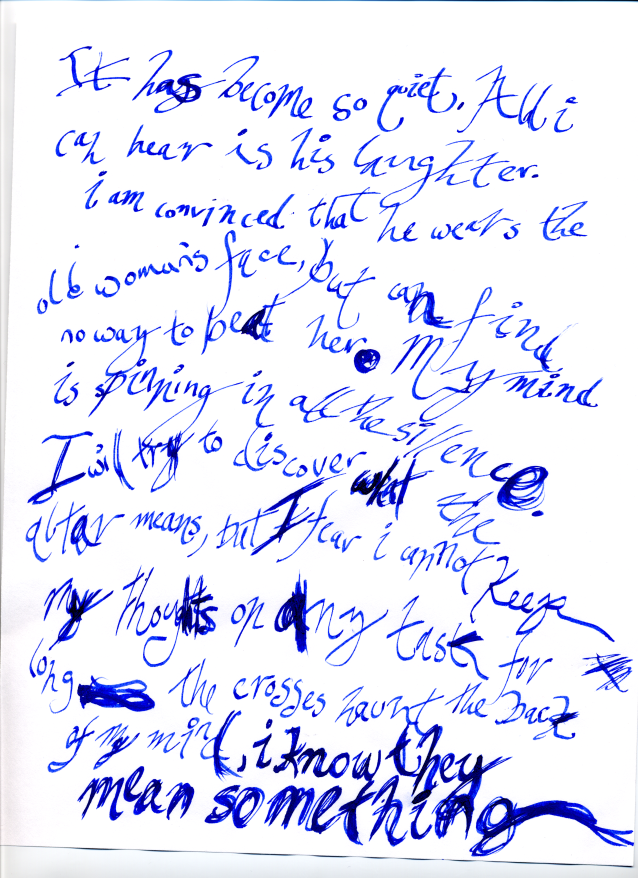 It has become so quiet. All i
can hear is his laughter.
i am convinced that he wears the
old woman's face, but can find
no way to beat her. My mind
is spinning in all the silence.
I will try to discover what the
altar means, but I fear i cannot keep
my thoughts on any task for
long the crosses haunt the back
of my mind, i know they
mean something